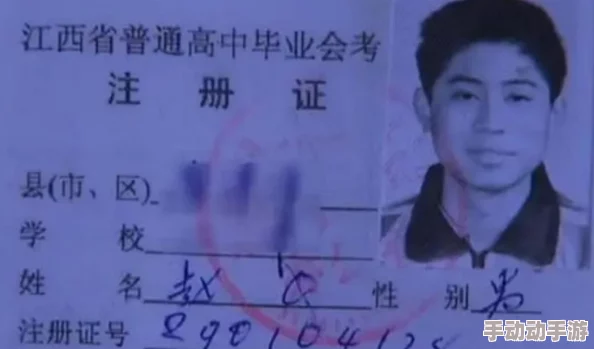 江西省普通高中毕业会考
注 册 证
县(市、区)
学 校
姓 名 赵C 性 别 男
注册证号
手动动手游